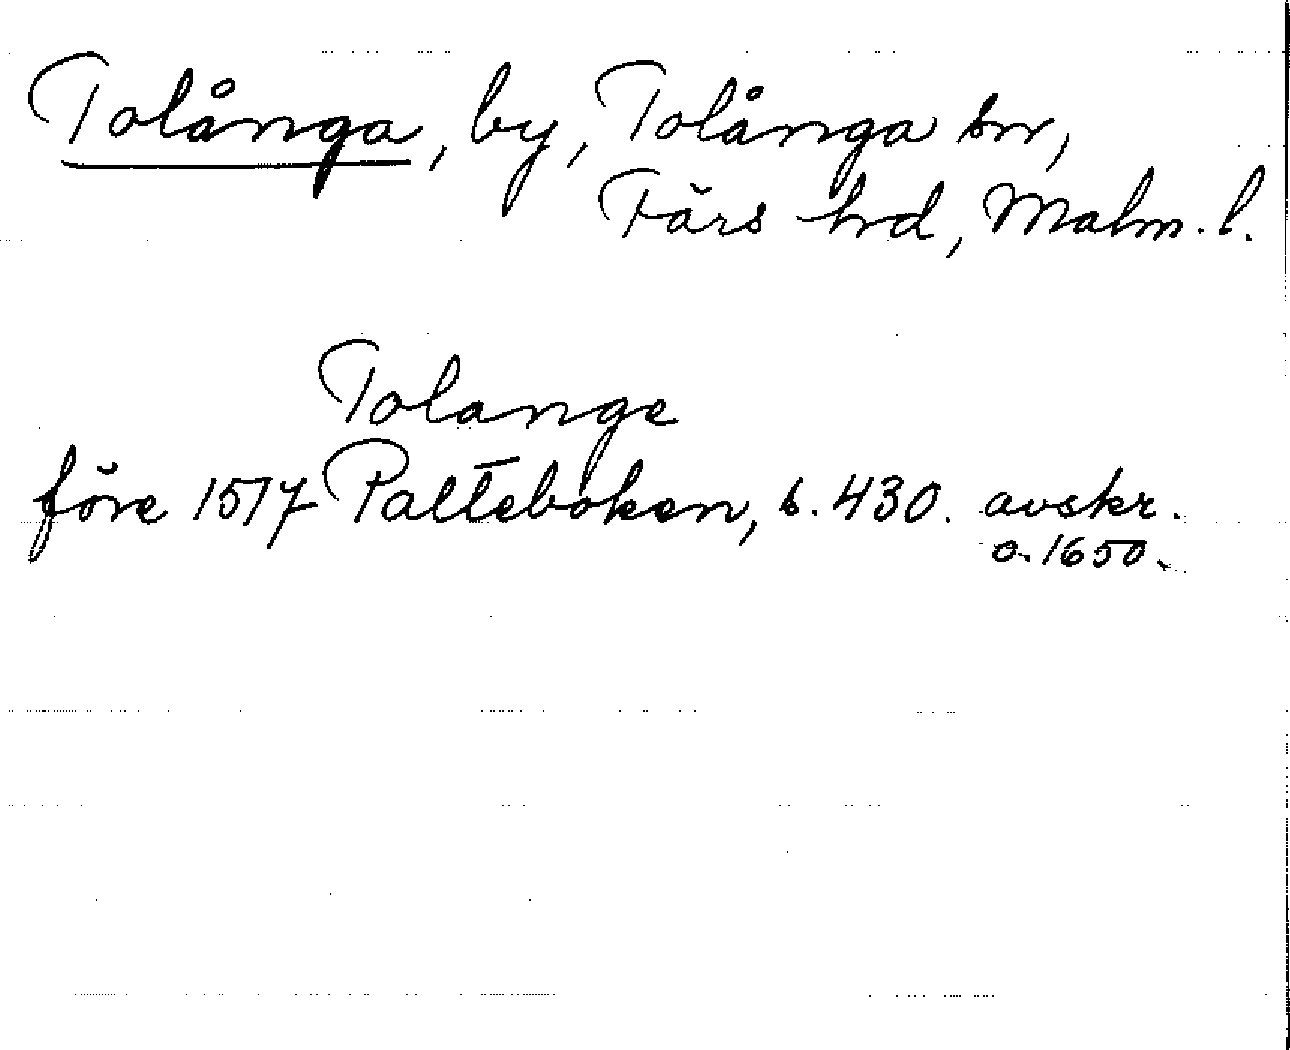 Tolånga, by, Tolånga sn,
Färs hrd, Malm. l.
Tolange
före 1517 Palteboken, s. 430. avskr.
o. 1650.